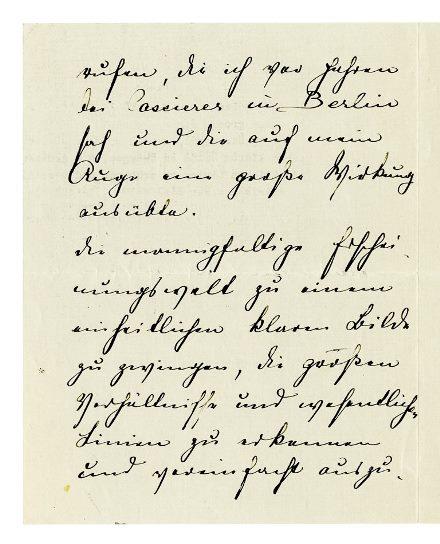 rufen, die ich vor Jahren
bei Cassierer in Berlin
sah und die auf mein
Auge eine große Wirkung
ausübte.
die mannigfaltige Erschei-
nungswelt zu einem
einheitlichen klaren Bilde
zu zwingen, die großen
Verhältnisse und wesentlichen
Linien zu erkennen
und vereinfacht auszu-